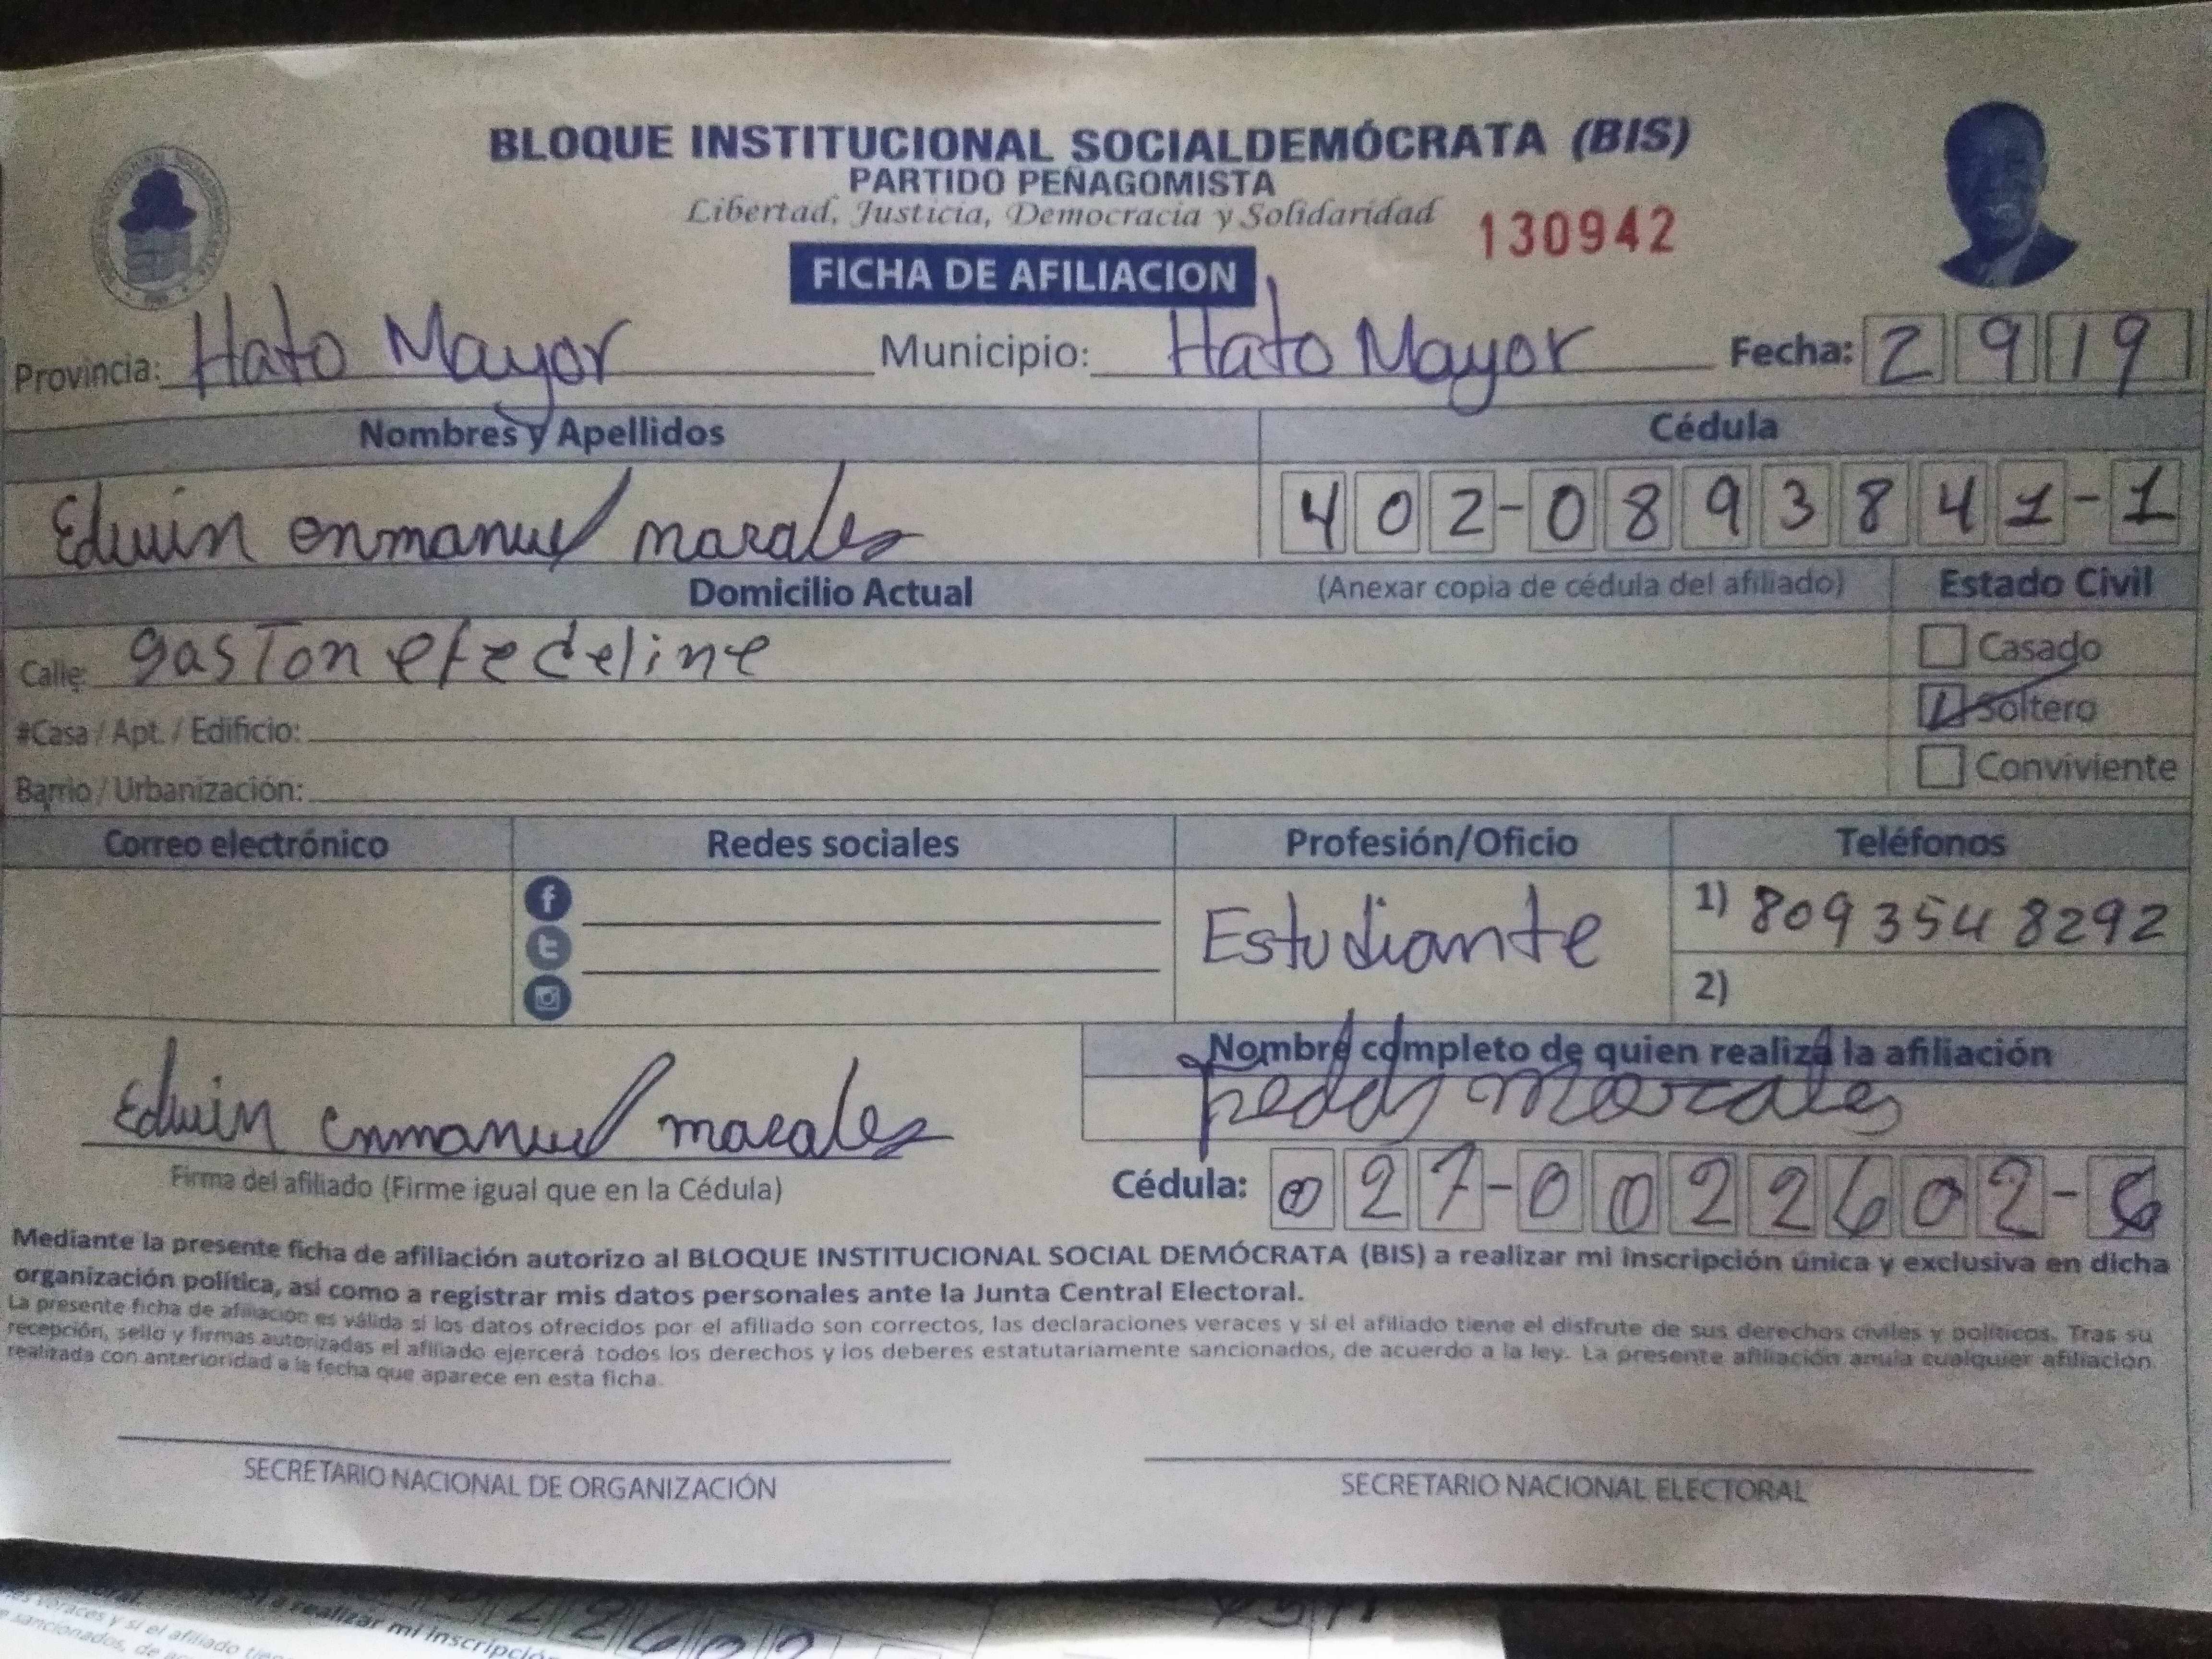 BLOQUE INSTITUCIONAL SOCIALDEMÓCRATA (BIS)
PARTIDO PEÑAGOMISTA
Libertad, Justicia, Democracia y Solidaridad
130942
FICHA DE AFILIACION
Provincia: Hato Mayor Municipio: Hato Mayor Fecha: 2 9 19
Nombres y Apellidos Cédula
Edwin enmanuel morales 402-0893841-1
Domicilio Actual (Anexar copia de cédula del afiliado) Estado Civil
Calle: gaston efe deline Casado
#Casa / Apt. / Edificio: Soltero
Barrio / Urbanización: Conviviente
Correo electrónico Redes sociales Profesión/Oficio Teléfonos
Estudiante 1) 809 354 8292
2)
Nombre completo de quien realiza la afiliación
Edwin enmanuel morales freddy Morales
Firma del afiliado (Firme igual que en la Cédula) Cédula: 027-0022602-
Mediante la presente ficha de afiliación autorizo al BLOQUE INSTITUCIONAL SOCIAL DEMÓCRATA (BIS) a realizar mi inscripción única y exclusiva en dicha
organización política, así como a registrar mis datos personales ante la Junta Central Electoral.
La presente ficha de afiliación es válida si los datos ofrecidos por el afiliado son correctos, las declaraciones veraces y si el afiliado tiene el disfrute de sus derechos civiles y políticos. Tras su
recepción, sello y firmas autorizadas el afiliado ejercerá todos los derechos y los deberes estatutariamente sancionados, de acuerdo a la ley. La presente afiliación anula cualquier afiliación
realizada con anterioridad a la fecha que aparece en esta ficha.
SECRETARIO NACIONAL DE ORGANIZACIÓN SECRETARIO NACIONAL ELECTORAL
a realizar mi inscripción
veraces y si el afiliado
sancionados, de